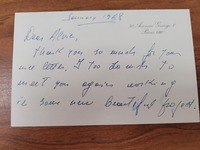 January 1988
Avenue George V
Paris VIIIe
Dear
thank you so much for your
nice letter. I too do wish to
meet you again working
in some new beautiful project.